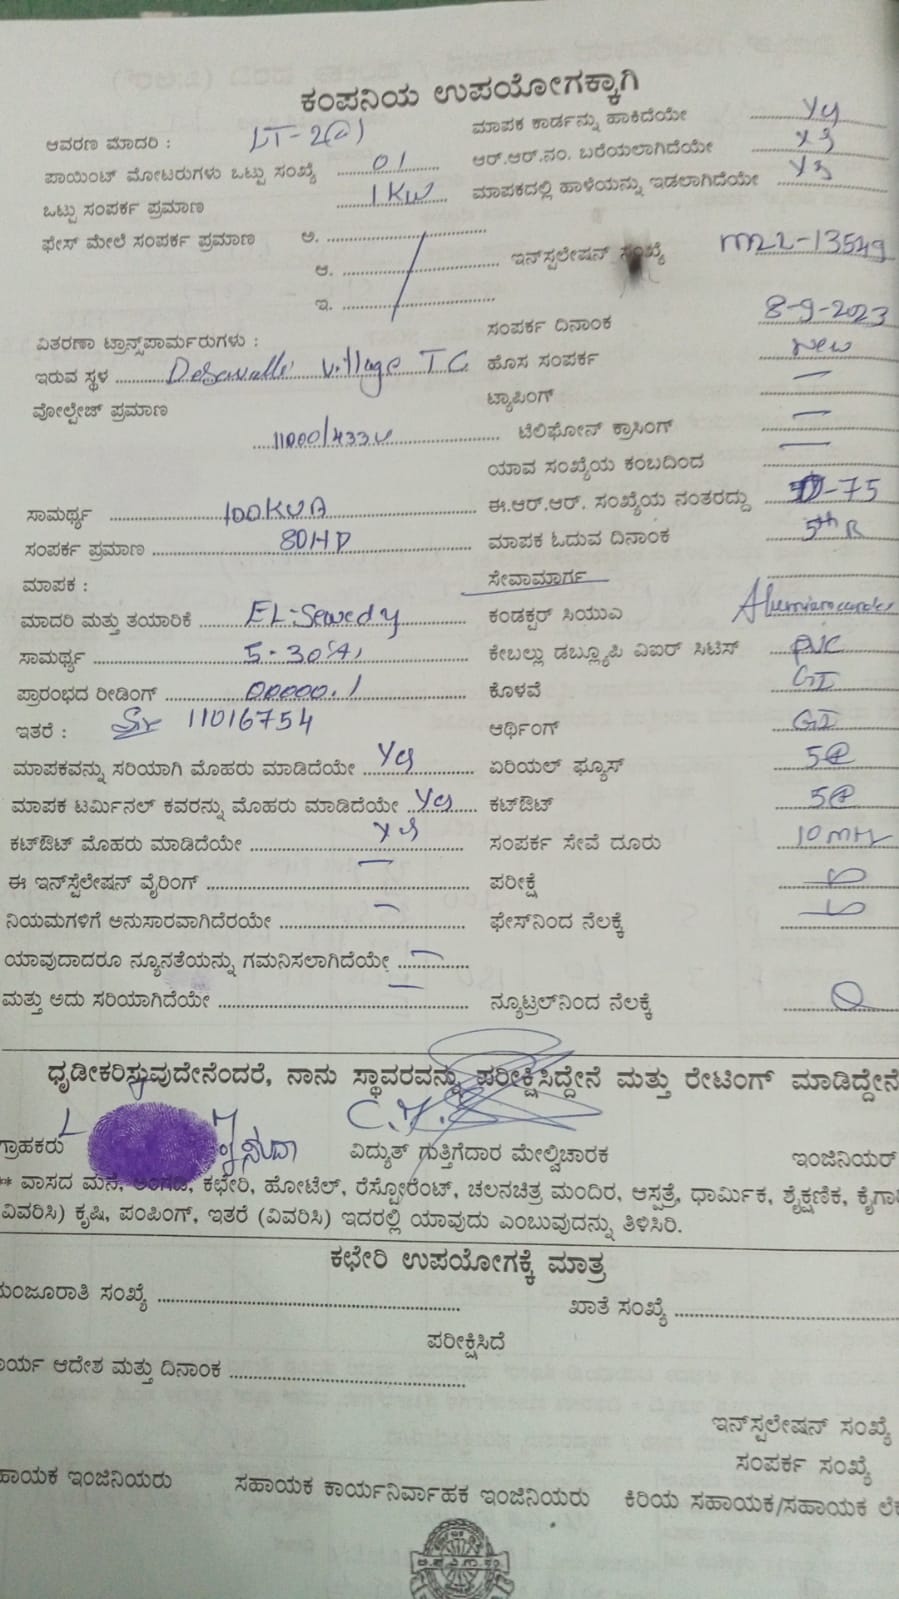 ಕಂಪನಿಯ ಉಪಯೋಗಕ್ಕಾಗಿ
ಆವರಣ ಮಾದರಿ : LT-2(a)
ಮಾಪಕ ಕಾರ್ಡನ್ನು ಹಾಕಿದೆಯೇ Yes
ಪಾಯಿಂಟ್ ಮೋಟರುಗಳು ಒಟ್ಟು ಸಂಖ್ಯೆ 01
ಆರ್.ಆರ್.ನಂ. ಬರೆಯಲಾಗಿದೆಯೇ Yes
ಒಟ್ಟು ಸಂಪರ್ಕ ಪ್ರಮಾಣ 1KW
ಮಾಪಕದಲ್ಲಿ ಹಾಳೆಯನ್ನು ಇಡಲಾಗಿದೆಯೇ Yes
ಫೇಸ್ ಮೇಲೆ ಸಂಪರ್ಕ ಪ್ರಮಾಣ ಅ.
ಆ.
ಇನ್‌ಸ್ಪಲೇಷನ್ ಸಂಖ್ಯೆ M22-13549
ಇ.
ಸಂಪರ್ಕ ದಿನಾಂಕ 8-9-2023
ವಿತರಣಾ ಟ್ರಾನ್ಸ್‌ಪಾರ್ಮರುಗಳು :
ಹೊಸ ಸಂಪರ್ಕ New
ಇರುವ ಸ್ಥಳ Village TC
ಟ್ಯಾಪಿಂಗ್ —
ವೋಲ್ಟೇಜ್ ಪ್ರಮಾಣ 11000/433V
ಟೆಲಿಫೋನ್ ಕ್ರಾಸಿಂಗ್ —
ಯಾವ ಸಂಖ್ಯೆಯ ಕಂಬದಿಂದ —
ಸಾಮರ್ಥ್ಯ 100KVA
ಈ.ಆರ್.ಆರ್. ಸಂಖ್ಯೆಯ ನಂತರದ್ದು -75
ಸಂಪರ್ಕ ಪ್ರಮಾಣ 80HP
ಮಾಪಕ ಓದುವ ದಿನಾಂಕ 5th
ಮಾಪಕ :
ಸೇವಾಮಾರ್ಗ
ಮಾದರಿ ಮತ್ತು ತಯಾರಿಕೆ EL-Sewedy
ಕಂಡಕ್ಟರ್ ಸಿಯುಎ
ಸಾಮರ್ಥ್ಯ 5-30(A)
ಕೇಬಲ್ಲು ಡಬ್ಲ್ಯೂಪಿ ವಿಐರ್ ಸಿಟಿಸ್ PVC
ಪ್ರಾರಂಭದ ರೀಡಿಂಗ್ 00000.1
ಕೊಳವೆ GI
ಇತರೆ : Sr 11016754
ಆರ್ಥಿಂಗ್ GI
ಮಾಪಕವನ್ನು ಸರಿಯಾಗಿ ಮೊಹರು ಮಾಡಿದೆಯೇ Yes
ಏರಿಯಲ್ ಫ್ಯೂಸ್ 5A
ಮಾಪಕ ಟರ್ಮಿನಲ್ ಕವರನ್ನು ಮೊಹರು ಮಾಡಿದೆಯೇ Yes
ಕಟ್‌ಔಟ್ 5A
ಕಟ್‌ಔಟ್ ಮೊಹರು ಮಾಡಿದೆಯೇ Yes
ಸಂಪರ್ಕ ಸೇವೆ ದೂರು 10
ಈ ಇನ್‌ಸ್ಪೆಲೇಷನ್ ವೈರಿಂಗ್ —
ಪರೀಕ್ಷೆ
ನಿಯಮಗಳಿಗೆ ಅನುಸಾರವಾಗಿದೆರಯೇ —
ಫೇಸ್‌ನಿಂದ ನೆಲಕ್ಕೆ
ಯಾವುದಾದರೂ ನ್ಯೂನತೆಯನ್ನು ಗಮನಿಸಲಾಗಿದೆಯೇ —
ಮತ್ತು ಅದು ಸರಿಯಾಗಿದೆಯೇ —
ನ್ಯೂಟ್ರಲ್‌ನಿಂದ ನೆಲಕ್ಕೆ
ಧೃಡೀಕರಿಸುವುದೇನೆಂದರೆ, ನಾನು ಸ್ಥಾವರವನ್ನು ಪರೀಕ್ಷಿಸಿದ್ದೇನೆ ಮತ್ತು ರೇಟಿಂಗ್ ಮಾಡಿದ್ದೇನೆ
ಗ್ರಾಹಕರು
ವಿದ್ಯುತ್ ಗುತ್ತಿಗೆದಾರ ಮೇಲ್ವಿಚಾರಕ
ಇಂಜಿನಿಯರ್
** ವಾಸದ ಮನೆ, ಅಂಗಡಿ, ಕಛೇರಿ, ಹೋಟೆಲ್, ರೆಸ್ಟೋರೆಂಟ್, ಚಲನಚಿತ್ರ ಮಂದಿರ, ಆಸ್ಪತ್ರೆ, ಧಾರ್ಮಿಕ, ಶೈಕ್ಷಣಿಕ, ಕೈಗಾ
ವಿವರಿಸಿ) ಕೃಷಿ, ಪಂಪಿಂಗ್, ಇತರೆ (ವಿವರಿಸಿ) ಇದರಲ್ಲಿ ಯಾವುದು ಎಂಬುವುದನ್ನು ತಿಳಿಸಿರಿ.
ಕಛೇರಿ ಉಪಯೋಗಕ್ಕೆ ಮಾತ್ರ
ಮಂಜೂರಾತಿ ಸಂಖ್ಯೆ
ಖಾತೆ ಸಂಖ್ಯೆ
ಪರೀಕ್ಷಿಸಿದೆ
ರ್ಯ ಆದೇಶ ಮತ್ತು ದಿನಾಂಕ
ಇನ್‌ಸ್ಪಲೇಷನ್ ಸಂಖ್ಯೆ
ಸಂಪರ್ಕ ಸಂಖ್ಯೆ
ಹಾಯಕ ಇಂಜಿನಿಯರು
ಸಹಾಯಕ ಕಾರ್ಯನಿರ್ವಾಹಕ ಇಂಜಿನಿಯರು
ಕಿರಿಯ ಸಹಾಯಕ/ಸಹಾಯಕ ಲೆಕ